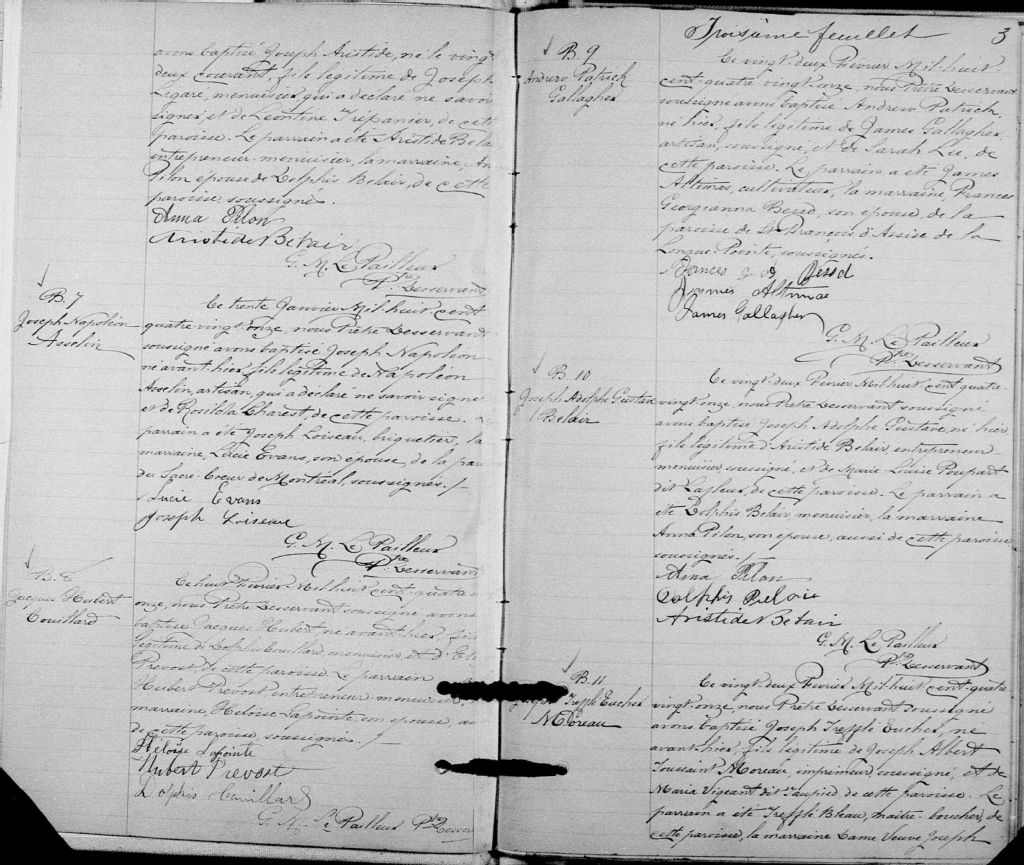 avons baptisé Joseph Aristide, né le vingt
deux courant, fils légitime de Joseph
Légaré, menuisier, qui a déclaré ne savoir
signer, et de Léontine Trépanier, de cette
paroisse. Le parrain a été Aristide Belair
entrepreneur-menuisier, la marraine, An
Pilon épouse de Delphis Belair, de cette
paroisse, soussignés.
Anna Pilon
Aristide Belair
G. M. Le Pailleur
Ptre Desservant
B. 7
Joseph Napoléon
Asselin
Ce trente Janvier Mil huit cent
quatre vingt onze, nous Prêtre Desservant
soussigné avons baptisé Joseph Napoléon
né avant-hier, fils légitime de Napoléon
Asselin, artisan, qui a déclaré ne savoir signer
et de Rosilda Charest, de cette paroisse. Le
parrain a été Joseph Loiseau, briquetier, la
marraine, Lucie Evans, son épouse, de la par
du Sacré-Coeur de Montréal, soussignés. /
Lucie Evans
Joseph Loiseau
G. M. Le Pailleur
Ptre Desservant
B. 8
Jacques Hubert
Couillard
Ce huit Février Mil huit cent quatre v
onze, nous Prêtre Desservant soussigné avons
baptisé Jacques Hubert né avant-hier, fils
légitime de Dolphis Couillard, menuisier, et d'
Prévost de cette paroisse. Le parrain
Hubert Prévost entrepreneur-menuisier,
marraine, Héloïse Lapointe son épouse, au
de cette paroisse, soussignés. /
Héloïse Lapointe
Hubert Prevost
Dolphis Couillard
G. M. Le Pailleur Ptre Desserv
Troisième feuillet 3
B. 9
Andrew Patrick
Gallagher
Ce vingt-deux Février Mil huit-
cent-quatre-vingt-onze, nous Prêtre Desservant
soussigné avons baptisé Andrew Patrick,
né hier, fils légitime de James Gallagher
artisan, soussigné, et de Sarah Lee, de
cette paroisse. Le parrain a été James
Altimas, cultivateur, la marraine, Frances
Georgeanna Bessd, son épouse, de la
paroisse de St François d'Assise de la
Longue-Pointe, soussignés.
Frances g a Bessd
James Altimas
James Gallagher
G. M. Le Pailleur
Ptre Desservant
B. 10
Joseph Adolphe Gustave
Belair
Ce vingt deux Février Mil huit cent quatre-
vingt onze, nous Prêtre Desservant soussigné
avons baptisé Joseph Adolphe Gustave, né hier
fils légitime d'Aristide Belair, entrepreneur-
menuisier, soussigné, et de Marie-Louise Poupart
dit Lafleur, de cette paroisse. Le parrain a
été Delphis Belair, menuisier, la marraine
Anna Pilon, son épouse, aussi de cette paroisse
soussignés. /
Anna Pilon
Delphis Belair
Aristide Belair
G. M. Le Pailleur
Ptre Desservant
B. 11
Joseph Treffle Eucher
Moreau
Ce vingt deux Février Mil huit cent quatre
vingt onze, nous Prêtre Desservant soussigné
avons baptisé Joseph Treffle Eucher, né
avant-hier, fils légitime de Joseph Albert
Toussaint Moreau, imprimeur soussigné, et de
Maria Vigeant dit Taupied de cette paroisse. Le
parrain a été Treffle Bleau, maître-boucher, de
cette paroisse, la marraine Dame Veuve Joseph